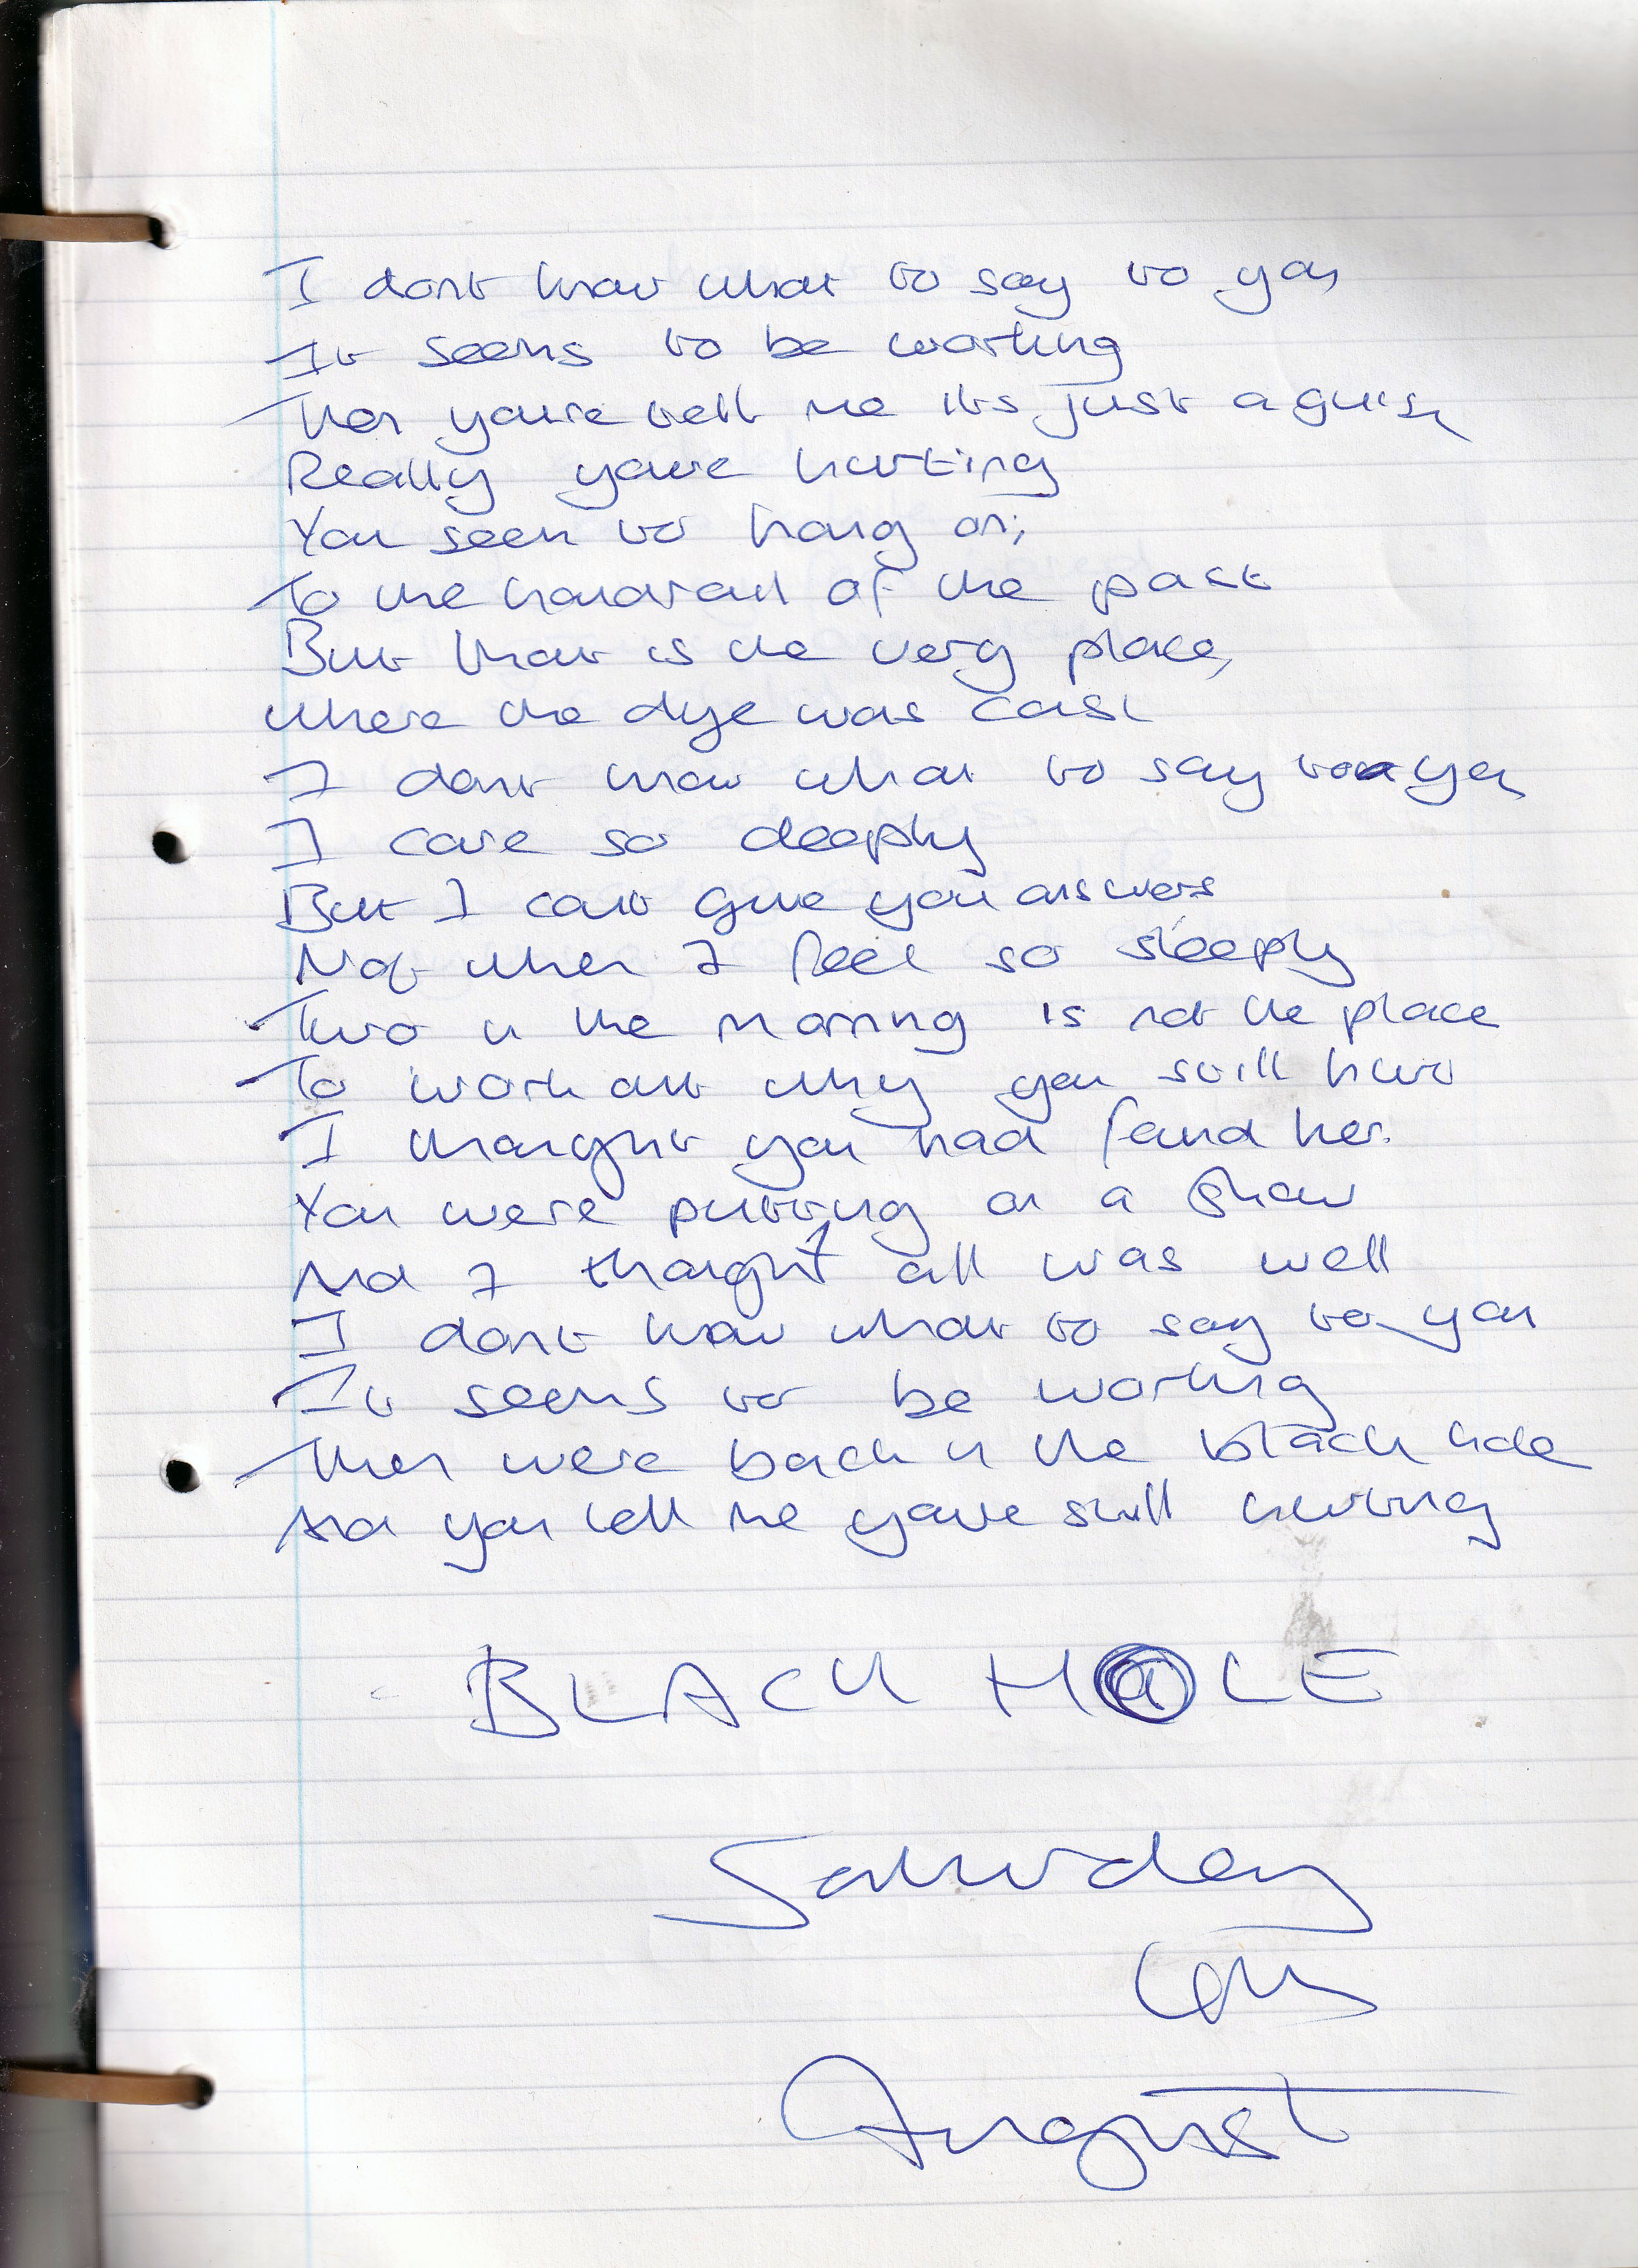 I dont know what to say to you
It seems to be working
Then you're tell me its just a guise
Really youre hurting
You seem to hang on;
To the handrail of the past
But that is the very place,
where the dye was cast
I dont know what to say to you
I care so deeply
But I cant give you answers
Not when I feel so sleepy
Two in the morning is not the place
To work out why you still hurt
I thought you had found her.
You were putting on a show
And I thought all was well
I dont know what to say to you
It seems to be working
Then were back in the black hole
And you tell me youre still hurting
BLACK HOLE
Saturday
August